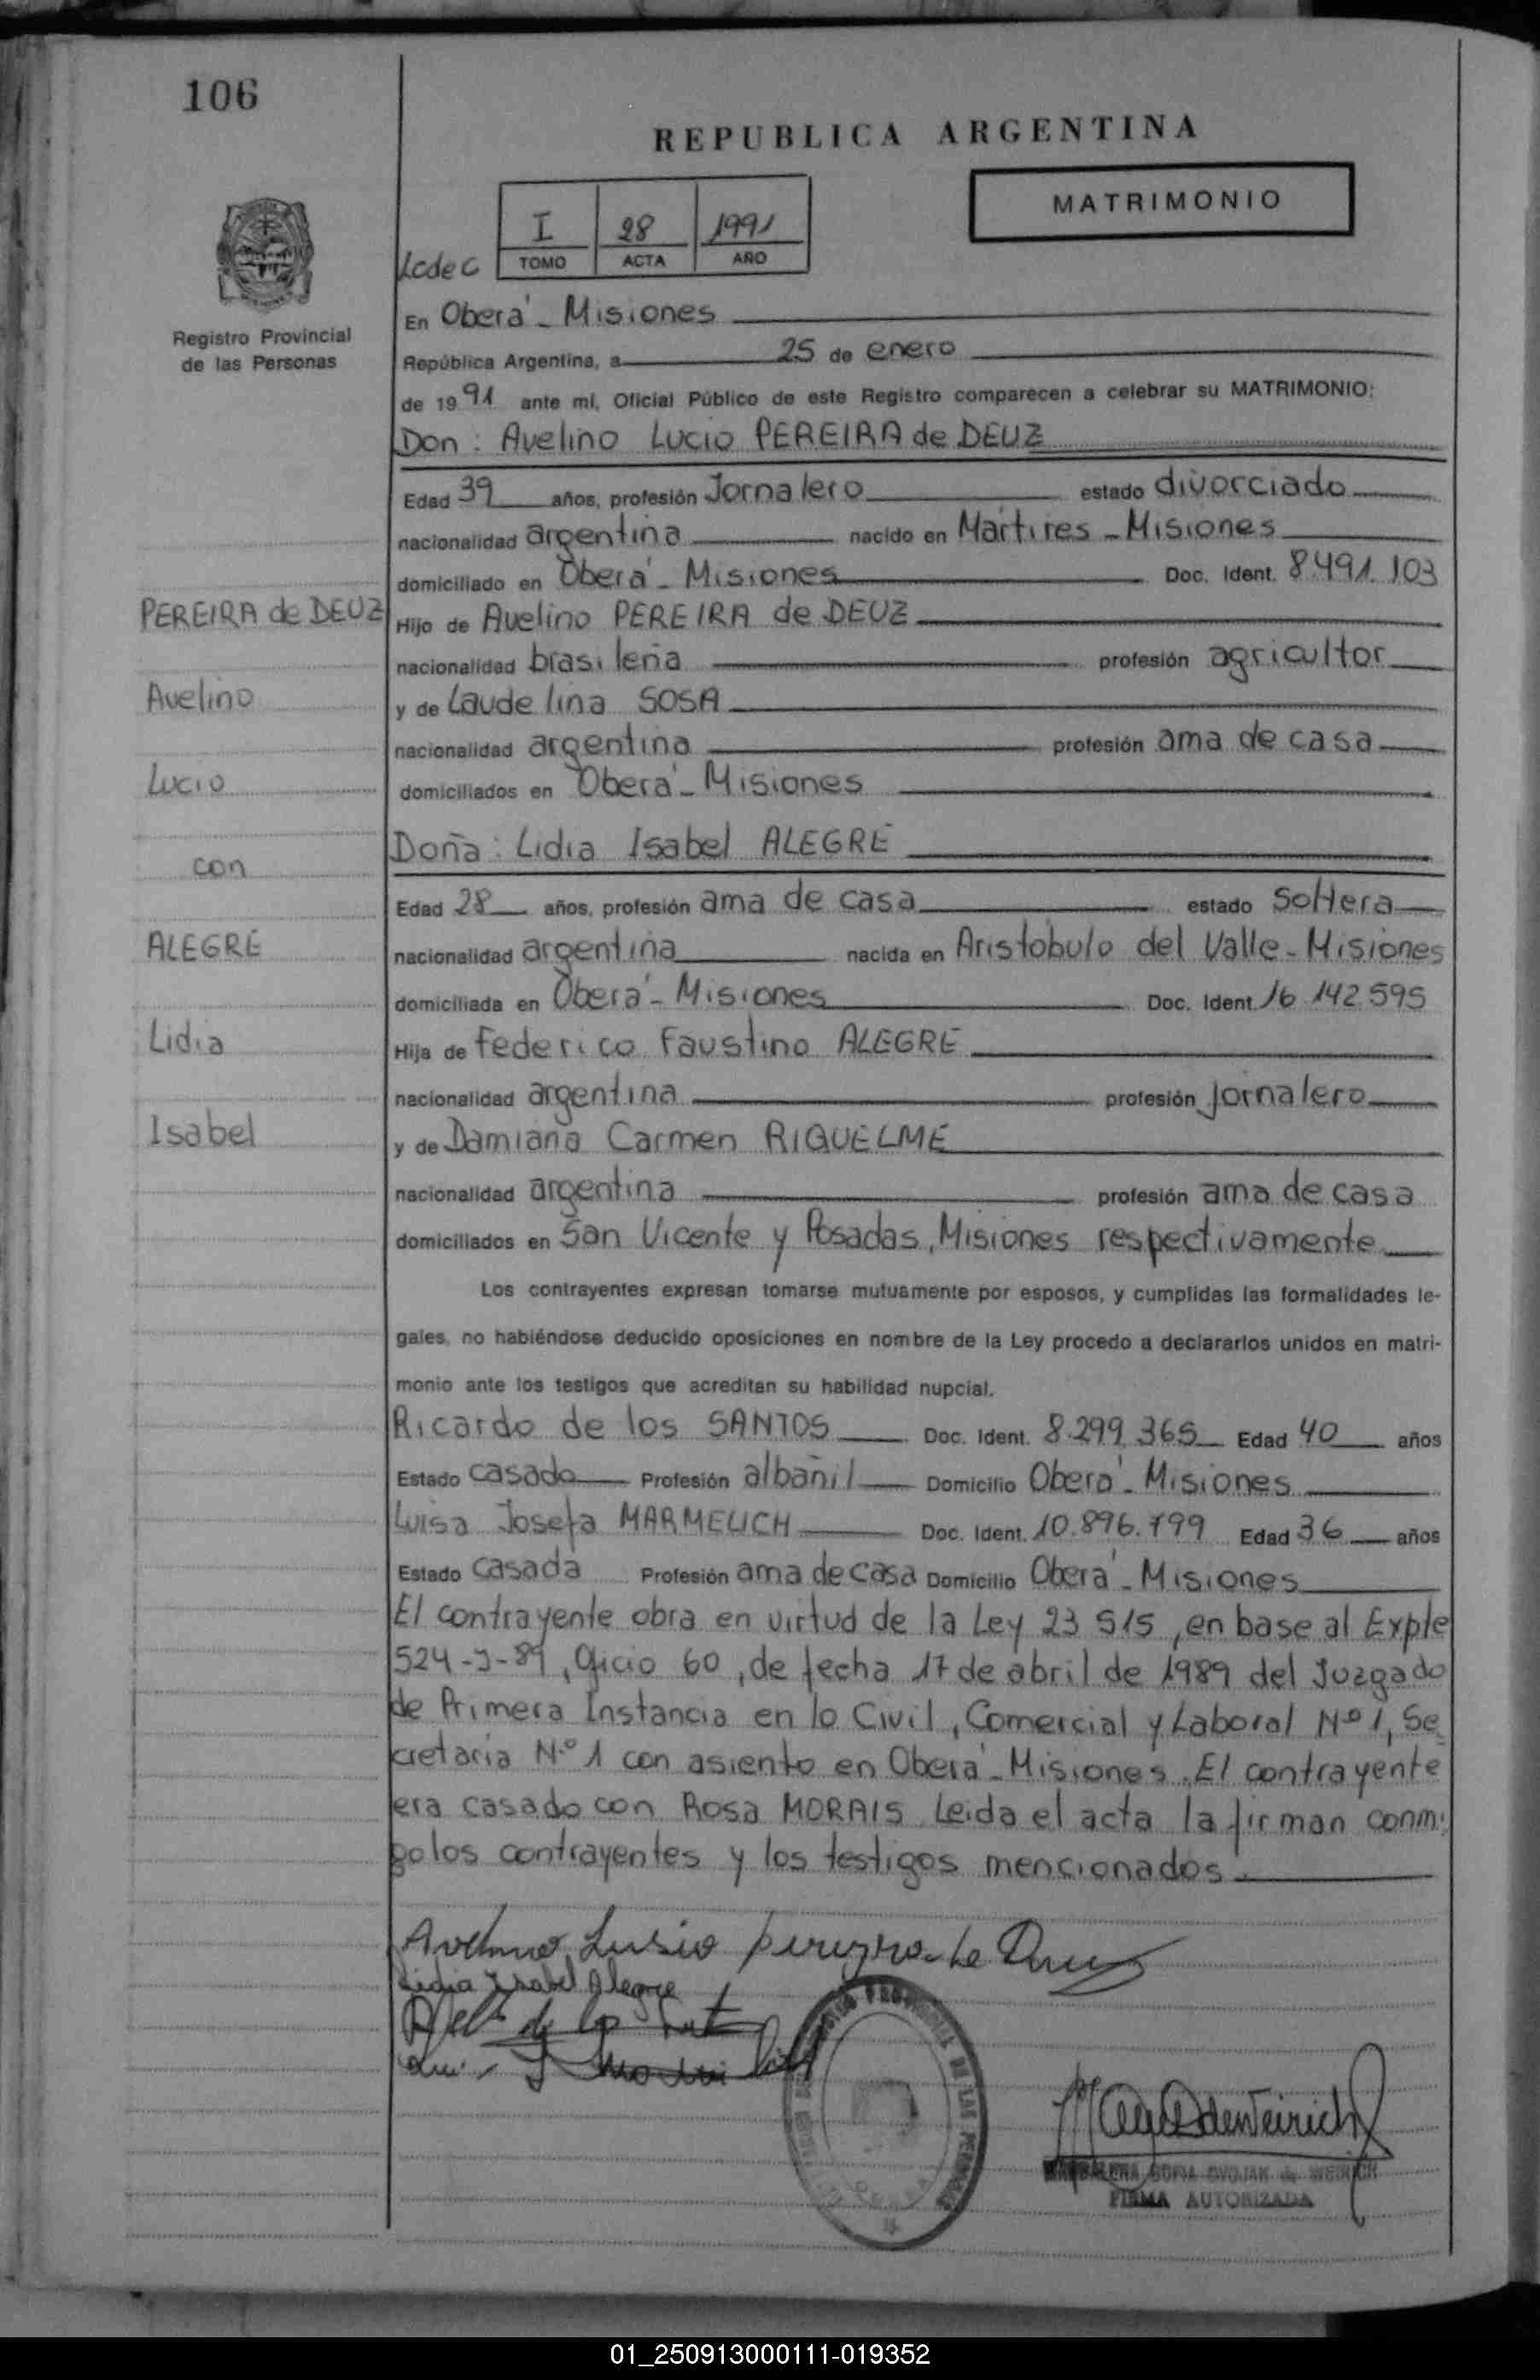 106
REPUBLICA ARGENTINA
MATRIMONIO
I 28 1991
TOMO ACTA AÑO
Registro Provincial
de las Personas
En Oberá - Misiones
República Argentina, a 25 de enero
de 1991 ante mí, Oficial Público de este Registro comparecen a celebrar su MATRIMONIO:
Don: Avelino Lucio PEREIRA de DEUZ
Edad 39 años, profesión Jornalero estado divorciado
nacionalidad argentina nacido en Mártires - Misiones
domiciliado en Oberá - Misiones Doc. Ident. 8.491.103
PEREIRA de DEUZ
Hijo de Avelino PEREIRA de DEUZ
nacionalidad brasileña profesión agricultor
Avelino
y de Laudelina SOSA
nacionalidad argentina profesión ama de casa
Lucio
domiciliados en Oberá - Misiones
Doña: Lidia Isabel ALEGRE
con
Edad 28 años, profesión ama de casa estado soltera
ALEGRE
nacionalidad argentina nacida en Aristobulo del Valle - Misiones
domiciliada en Oberá - Misiones Doc. Ident. 16.142.595
Lidia
Hija de Federico Faustino ALEGRE
nacionalidad argentina profesión jornalero
Isabel
y de Damiana Carmen RIQUELME
nacionalidad argentina profesión ama de casa
domiciliados en San Vicente y Posadas, Misiones respectivamente
Los contrayentes expresan tomarse mutuamente por esposos, y cumplidas las formalidades le-
gales, no habiéndose deducido oposiciones en nombre de la Ley procedo a declararlos unidos en matri-
monio ante los testigos que acreditan su habilidad nupcial.
Ricardo de los SANTOS Doc. Ident. 8.299.365 Edad 40 años
Estado casado Profesión albañil Domicilio Oberá - Misiones
Luisa Josefa MARMELICH Doc. Ident. 10.896.799 Edad 36 años
Estado casada Profesión ama de casa Domicilio Oberá - Misiones
El contrayente obra en virtud de la Ley 23 515, en base al Expte
524-J-89, Oficio 60, de fecha 17 de abril de 1989 del Juzgado
de Primera Instancia en lo Civil, Comercial y Laboral Nº 1, Se
cretaria Nº 1 con asiento en Oberá - Misiones. El contrayente
era casado con Rosa MORAIS. Leida el acta la firman conmi
go los contrayentes y los testigos mencionados.
Avelino Lusio pereyra de Deuz
Lidia Isabel Alegre
DE LAS PERSONAS
SOFIA DVOJAK de WEIRICH
FIRMA AUTORIZADA
01_250913000111-019352